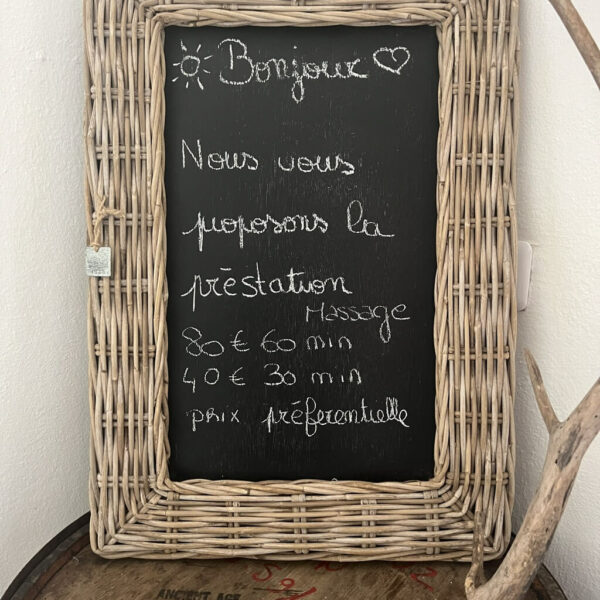 Bonjour
Nous vous
proposons la
prèstation
Massage
80 € 60 min
40 € 30 min
PRIX préferentielle
ANCIENT AGE